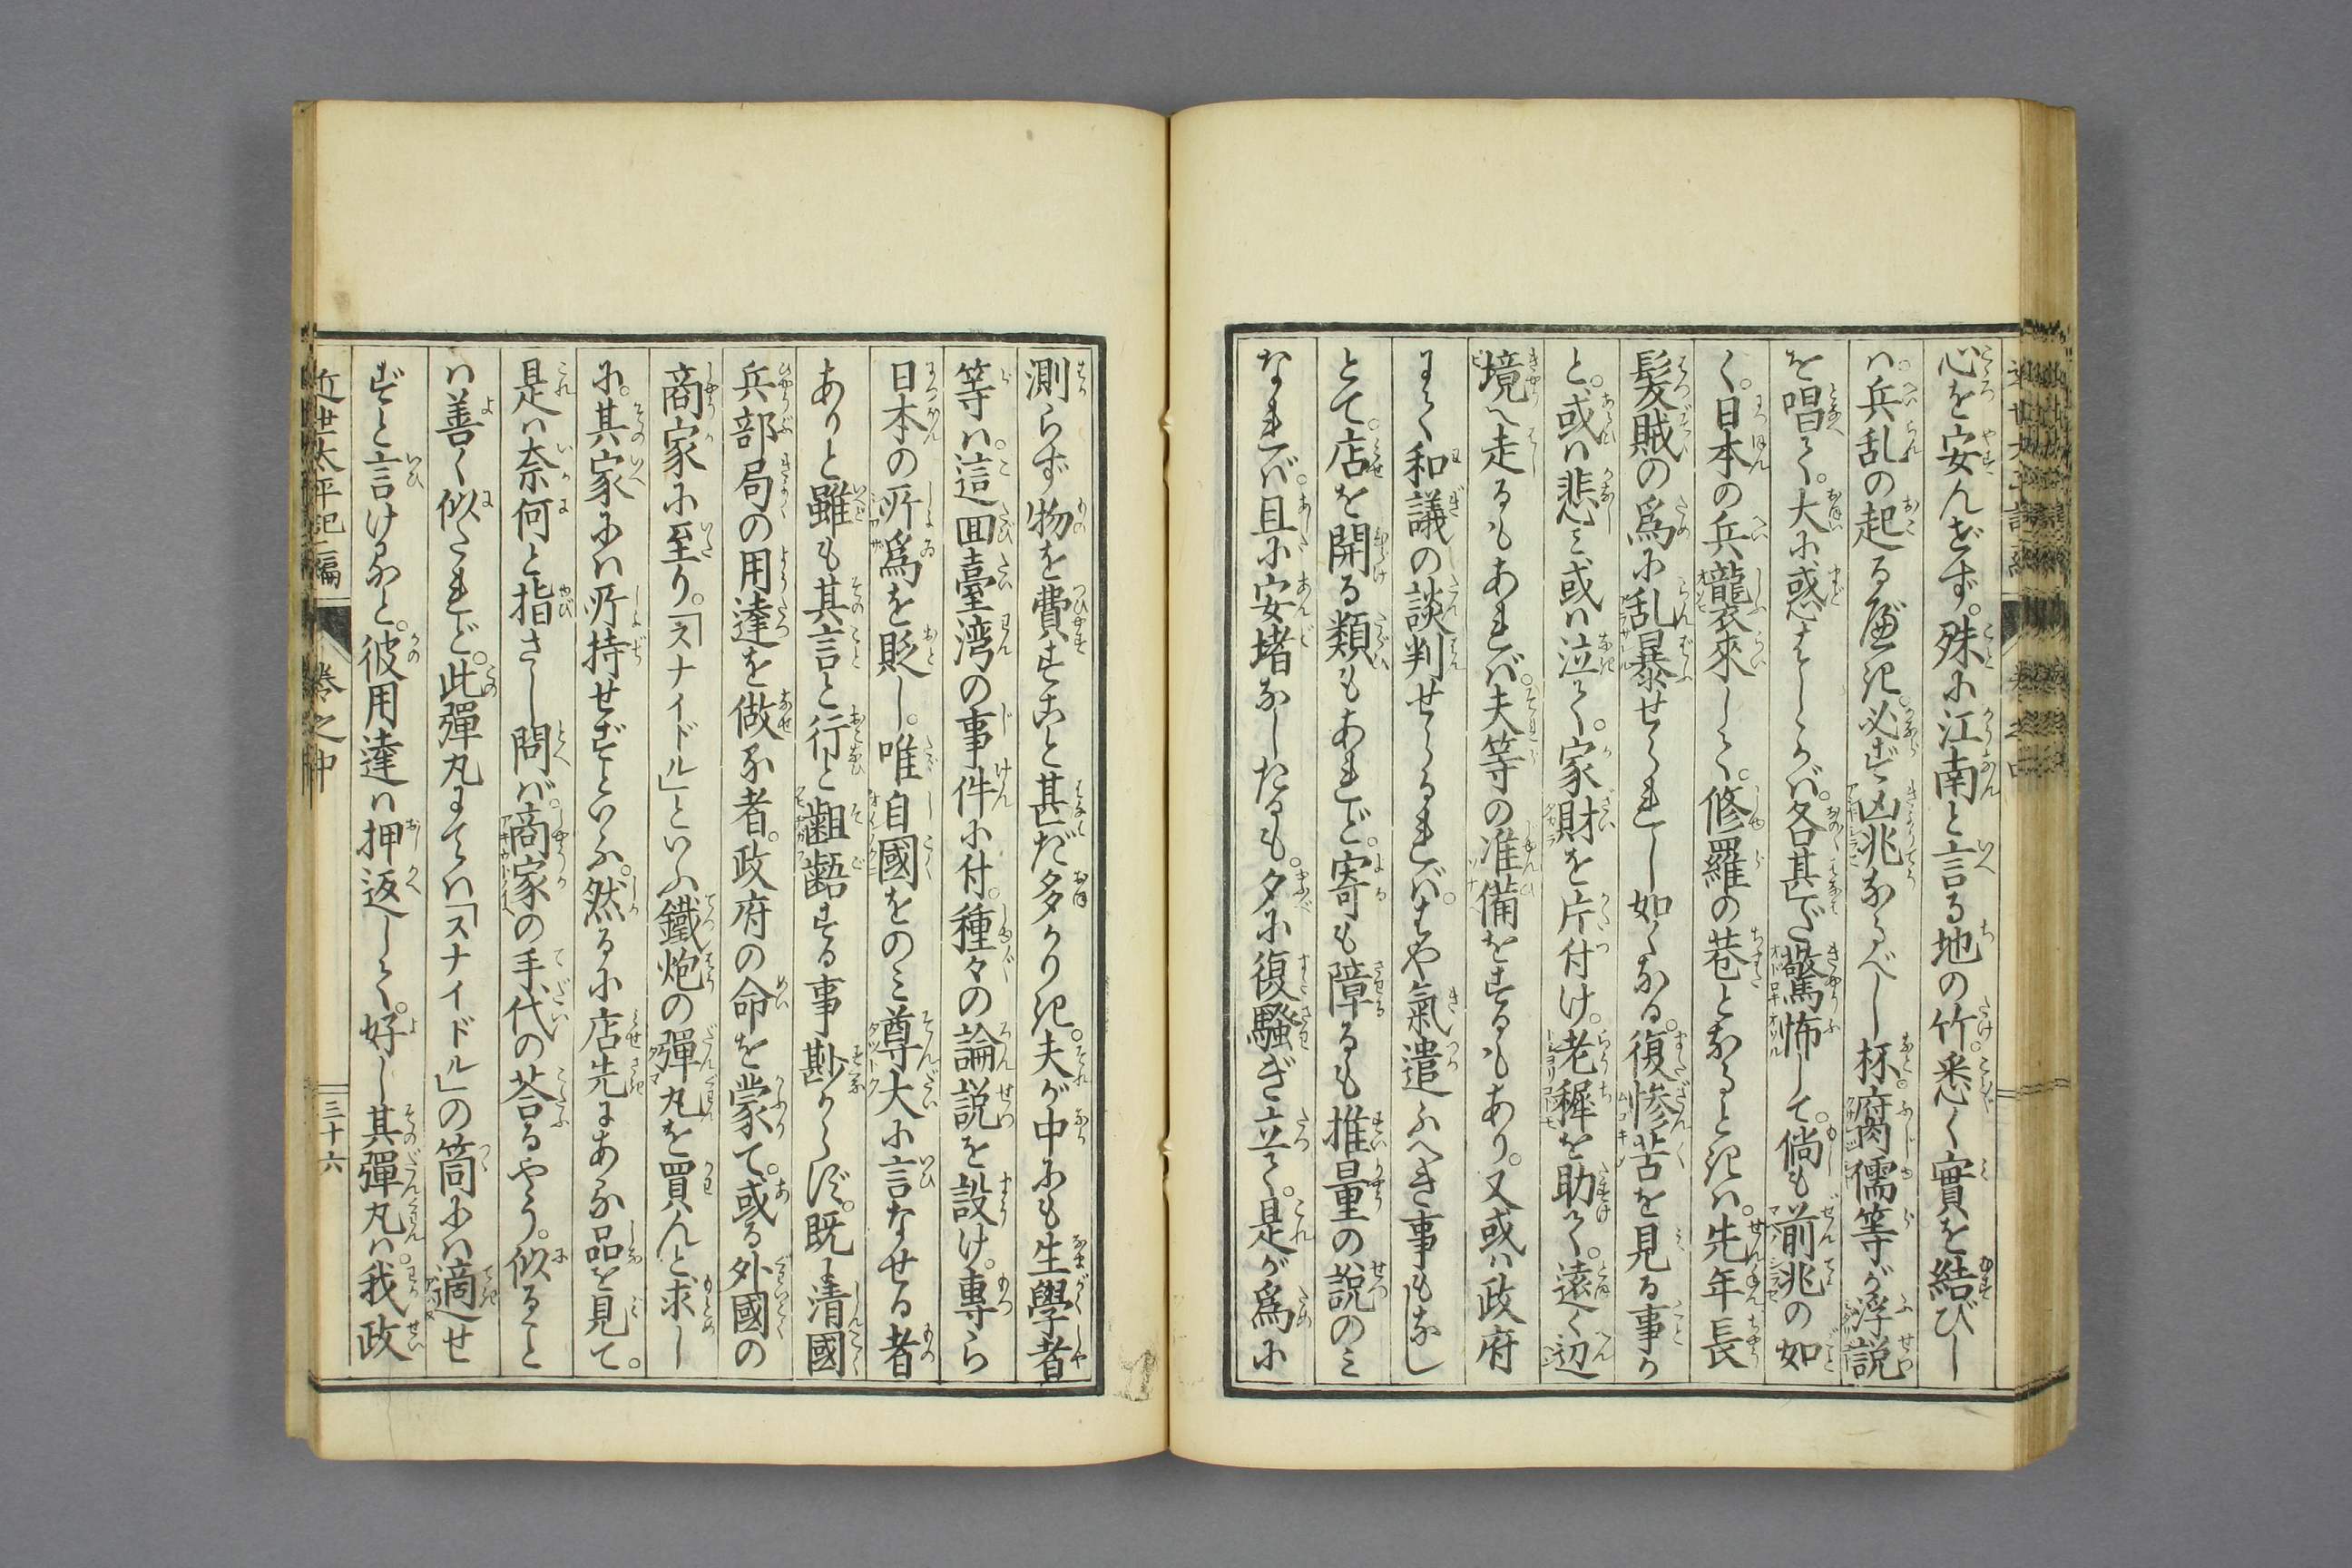 心を安んぜず。殊に江南と言る地の竹。悉く實を結びし
ハ。兵乱の起る萠さにき。必ず凶兆なるべし抔。腐儒等が浮説
を唱へて。大に惑はしかバ。各甚だ驚怖して。倘も前兆の如
く。日本の兵襲來して。修羅の巷となるときハ。先年長
髮賊の爲に乱暴せられし如くなる。復惨苦を見る事か
と。或ハ悲ミ或ハ泣て。家財を片付け。老穉を助けて。遠く辺
境へ走るもあれバ。夫等の准備をするもあり。又或ハ政府
にて和議の談判せらるれバ。はや氣遣ふへき事もなし
とて。店を開る類もあれど。寄も障るも推量の説のミ
なれバ。旦に安堵なしたるも。夕に復騒ぎ立て。是が爲に
測らず物を費すこと甚だ多かりき。夫が中にも生學者
等ハ。這回臺湾の事件に付。種々の論説を設け。專ら
日本の所爲を貶し。唯自國をのミ尊大に言なせる者
ありと雖も其言と行と齟齬する事尠からず。既に清國
兵部局の用達を做る者。政府の命を蒙て。或る外國の
商家に至り。「スナイドル」といふ鐵炮の彈丸を買んと求し
に。其家にハ所持せずといふ。然るに店先にある品を見て。
是ハ奈何と指さし問バ。商家の手代の荅るやう。似ると
ハ善く似たれど。此彈丸にてハ「スナイドル」の筒にハ適せ
ずと言けると。彼用達ハ押返して。好し其彈丸ハ。我政
近世太平記二編
卷之中
三十六